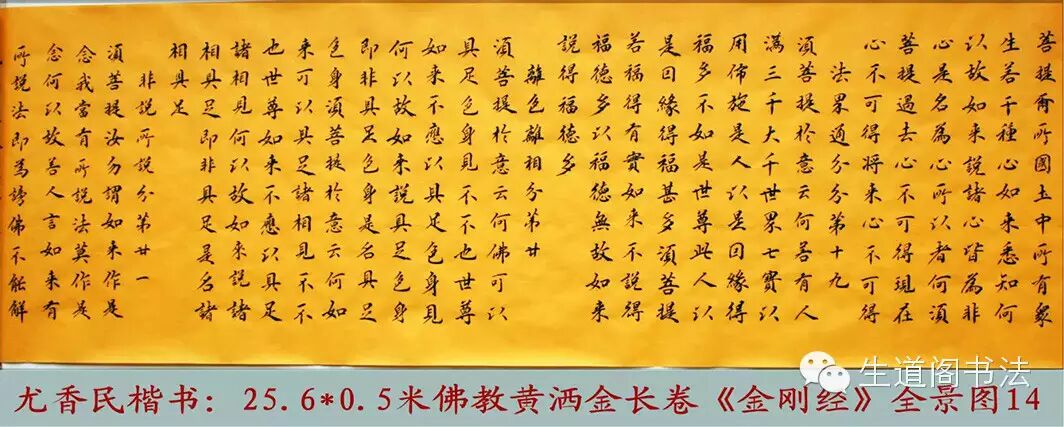 菩提爾所國土中所有衆
生若千種心如來悉知何
以故如來說諸心皆為非
心是名為心所以者何須
菩提過去心不可得現在
心不可得將来心不可得
法界通分分第十九
須菩提於意云何若有人
滿三千大千世界七寶以
用佈施是人以是因緣得
福多不如是世尊此人以
是因緣得福甚多須菩提
若福得有實如来不說得
福德多以福德無故如来
說得福德多
離色離相分第廿
須菩提於意云何佛可以
具足色身見不不也世尊
如来不應以具足色身見
何以故如来說具足色身
即非具足色身是名具足
色身須菩提於意云何如
来可以具足諸相見不不
也世尊如来不應以具足
諸相見何以故如来說諸
相具足即非具足是名諸
相具足
非說所說分第廿一
須菩提汝勿謂如来作是
念我當有所說法莫作是
念何以故若人言如来有
所說法即為謗佛不能解
生道阁书法
尤香民楷书：25.6*0.5米佛教黄洒金长卷《金刚经》全景图14